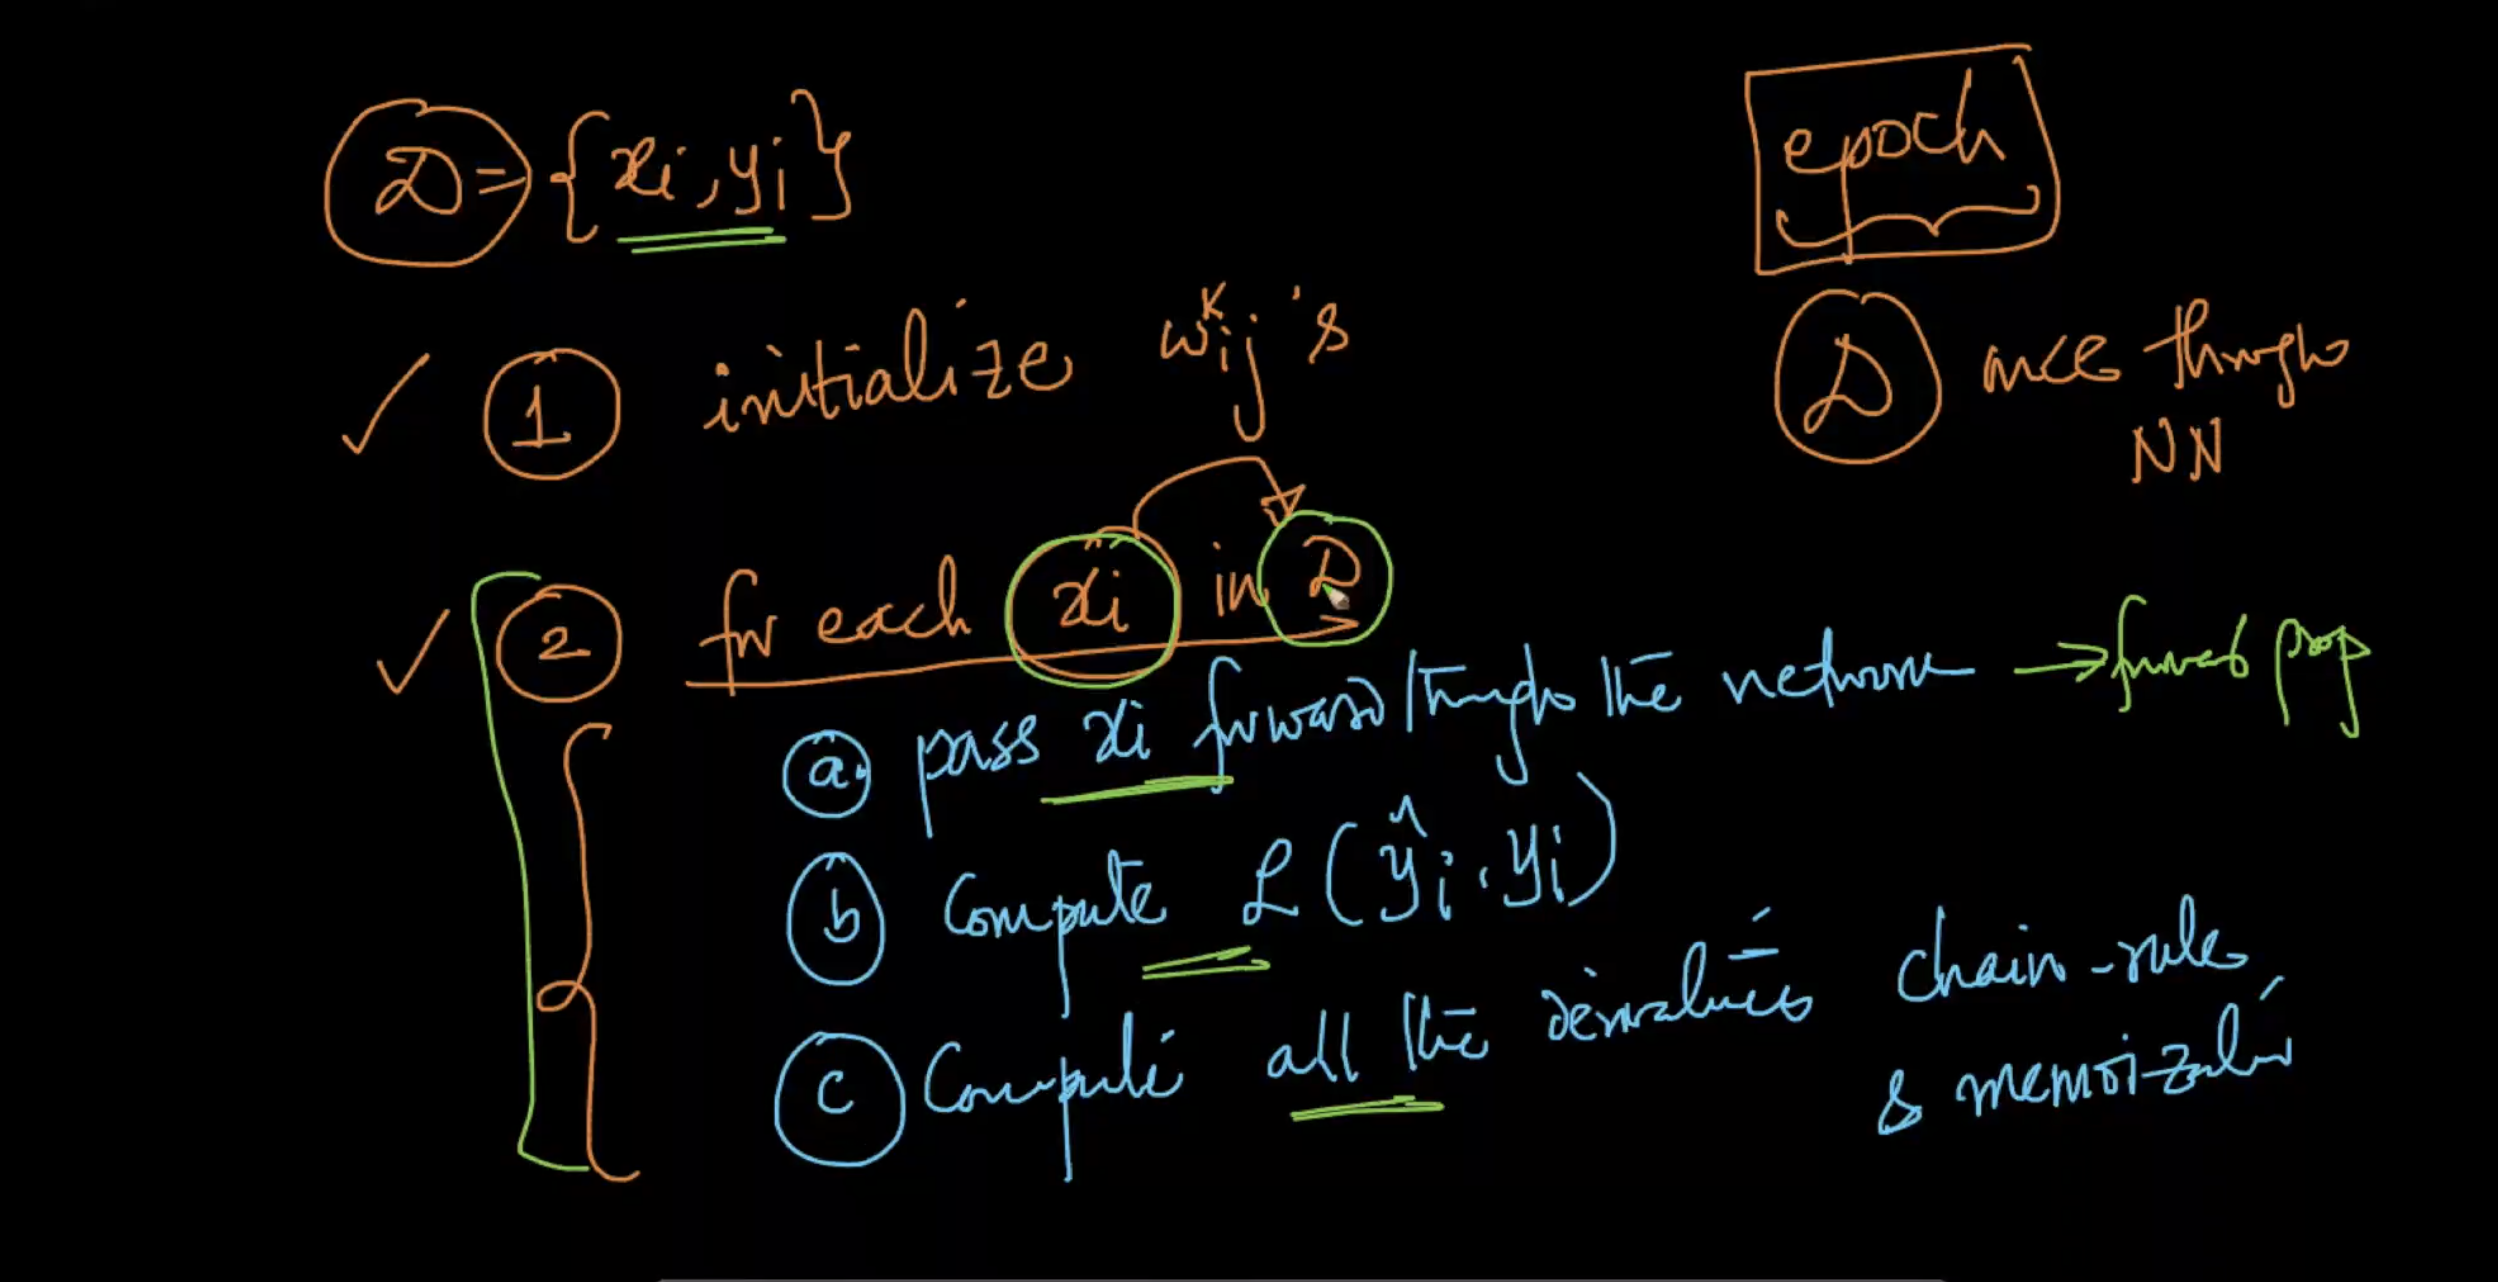 D = {xi, yi}
epoch
1 initialize wᵏij's
D once through
NN
2 for each xi in D
a. pass xi forward through the network → forward prop
b compute L(ŷi, yi)
c compute all the derivatives chain-rule
& memoization